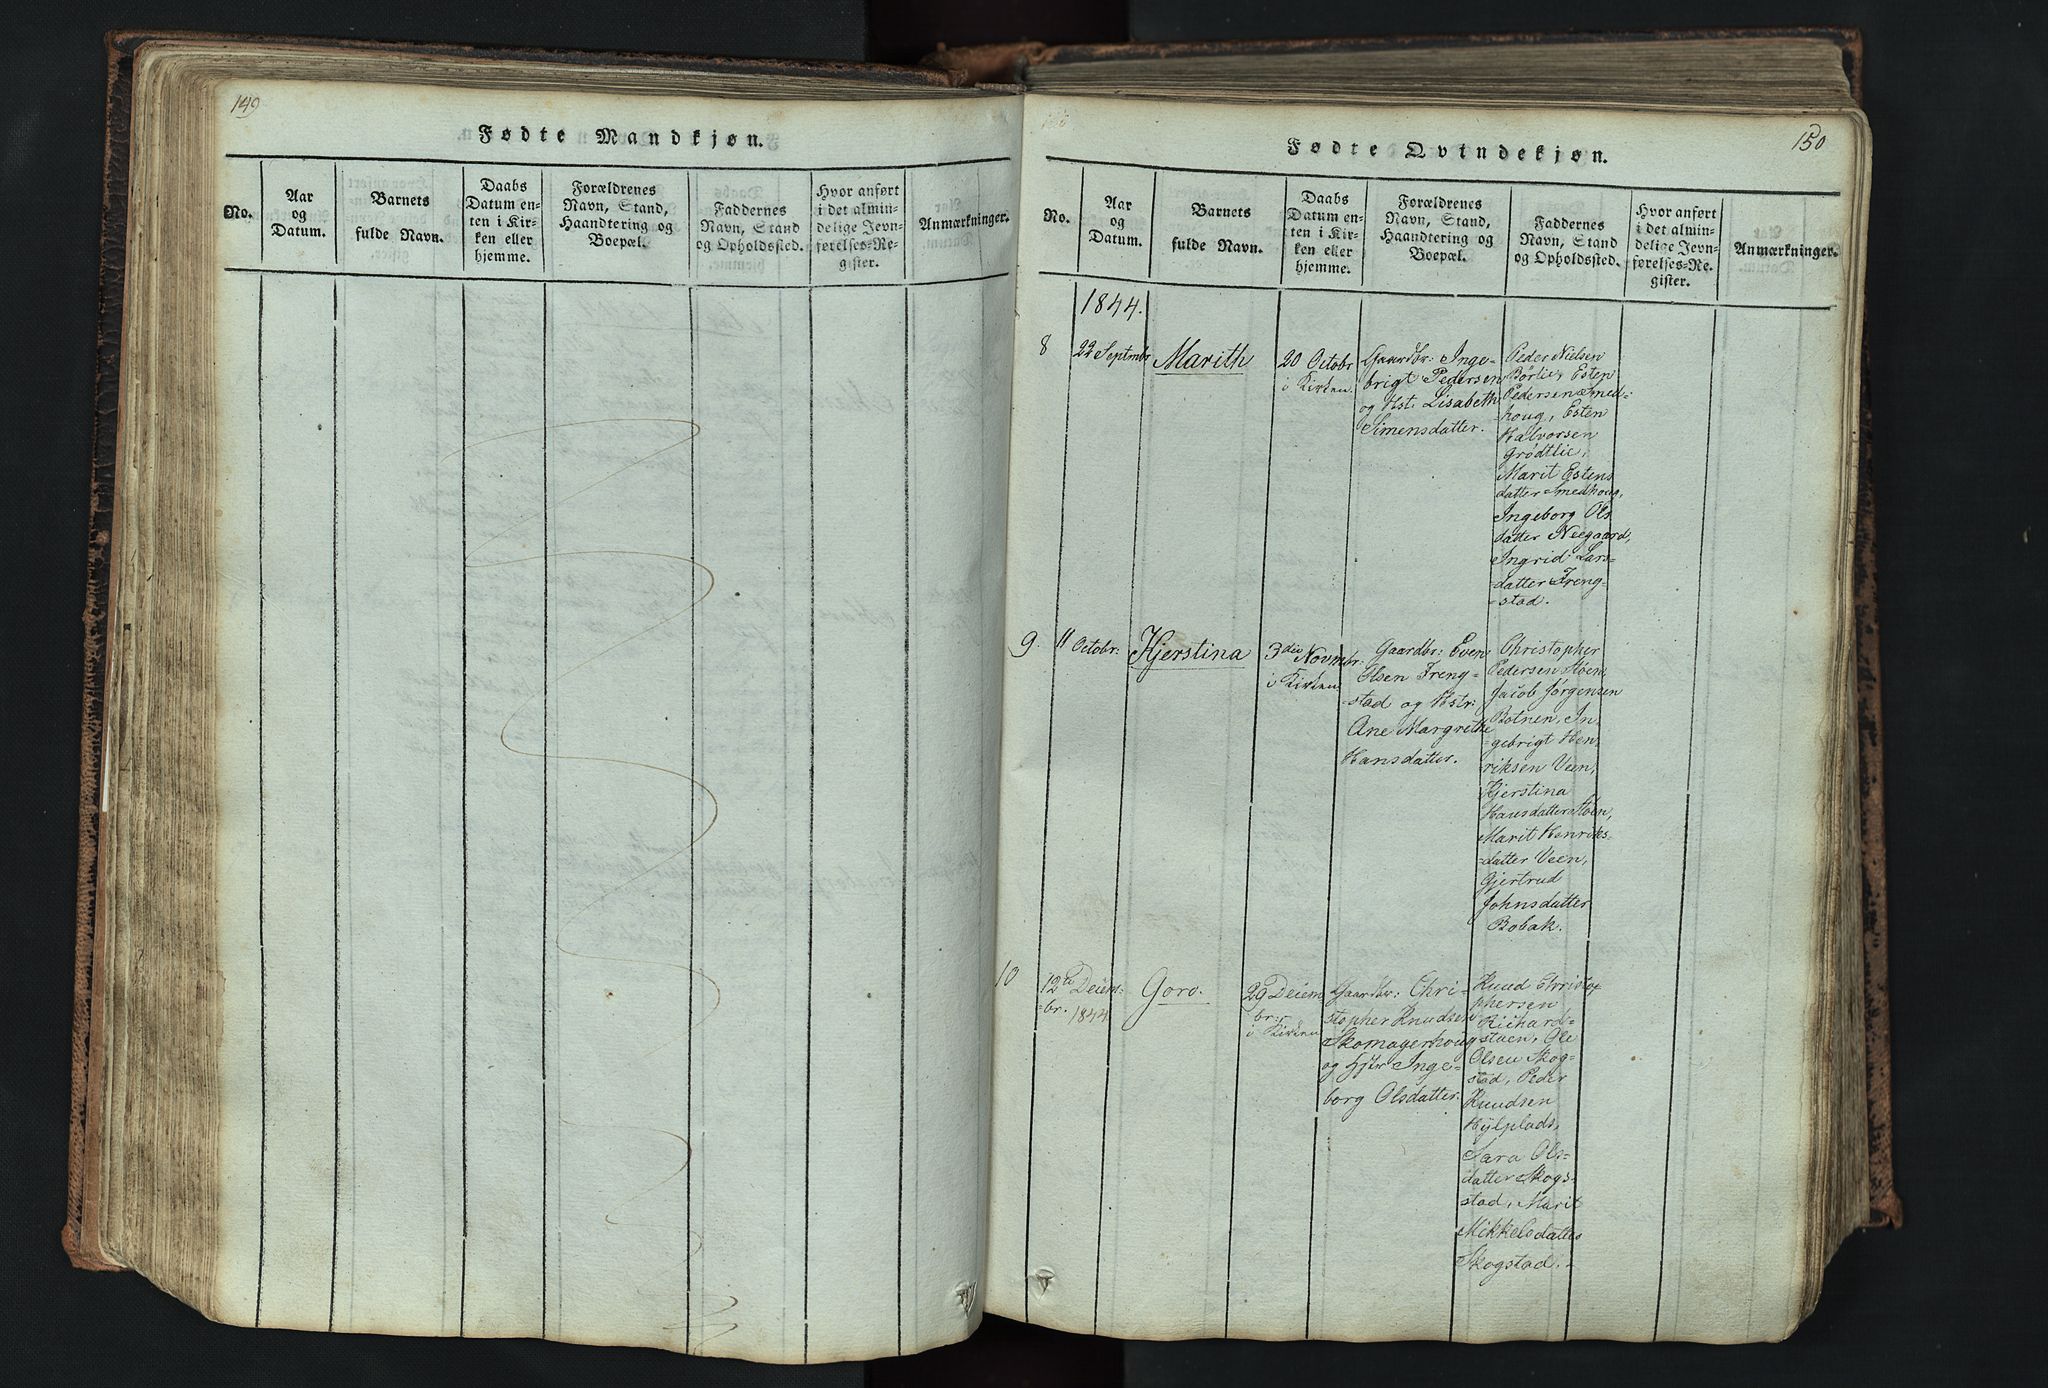 149
Fødte Mandkjøn.
No.
Aar
og
Datum.
Barnets
fulde Navn.
Daabs
Datum en-
ten i Kir-
ken eller
hjemme.
Forældrenes
Navn, Stand,
Haandtering og
Boepæl.
Faddernes
Navn, Stand
og Opholdssted.
Hvor anført
i det almin-
delige Jevn-
førelses-Re-
gister.
Anmærkninger.
150
Fødte Qvindekjøn.
No.
Aar
og
Datum.
Barnets
fulde Navn.
Daabs
Datum en-
ten i Kir-
ken eller
hjemme.
Forældrenes
Navn, Stand,
Haandtering og
Boepæl.
Faddernes
Navn, Stand
og Opholdssted.
Hvor anført
i det almin-
delige Jevn-
førelses-Re-
gister.
Anmærkninger.
1844.
8
22 Septmbr
Marith
20 Octobr
i Kirken
Gaardbr: Inge-
brigt Pedersen
og Hst. Lisabeth
Simensdatter.
Peder Nielsen
Børlie, Esten
Pedersen Smed-
houg, Esten
Halvorsen
Grødtlie,
Marit Estens
datter Smedhoug,
Ingeborg Ols
datter Neegaard,
Ingrid Lars-
datter Freng-
-stad.
9.
11 Octobr:
Kjerstina
3die Novmbr:
i Kirken
Gaardbr: Even
Olsen Freng-
-stad og Hstr:
Ane Margrethe
Hansdatter.
Christopher
Pedersen Støen,
Jacob Jørgensen
Botnen, In-
-gebrigt Hen
riksen Veen,
Kjerstina
Hansdatter Støen,
Marit Henriks-
-datter Veen,
Gjertrud
Johnsdatter
Bobak.
10
12te Decem-
-br. 1844
Goro.
29 Decem
br:
i Kirken
Gaardbr: Chri-
stopher Knudsen
Skomagerhoug
og Hstr Inge-
borg Olsdatter.
Knud Christop
phersen
Richard-
stuen, Ole
Olsen Skog-
stad, Peder
Knudsen
Hylplads,
Sara Ols-
datter Skogs-
stad, Marit
Mikkelsdatter
Skogstad.